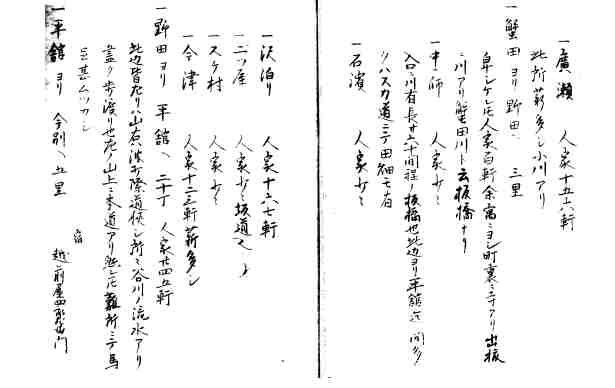 一廣瀬 人家十五六軒
此所薪多シ小川アリ
一蟹田ヨリ野田ヘ 三里
阜シケレ𪜈人家百軒余富ミヨシ町裏ニ寺アリ出坂
ニ川アリ蟹田川ト云板橋ナリ
一中師 人家少々
入口ニ川有長サ六十間程ノ板橋也此辺ヨリ平舘迄ノ間多
クハスカ道ニテ田畑モナ
一石濱 人家少々
一沢泊リ 人家十六七軒
一二ツ屋 人家少々坂道
一スケ村 人家少々
一今津 人家十二三軒薪多シ
一野田ヨリ平舘ヘ 二十丁 人家廿四五軒
此辺皆左リハ山右ハ波打際道狭シ所々谷川ノ流水アリ
蓋ク歩渡リ也左ノ山上ニ本道アリ然レ𪜈難所ニテ馬
足甚ムツカシ
一平舘ヨリ今別ヘ五里 宿 越前屋四郎右衛門